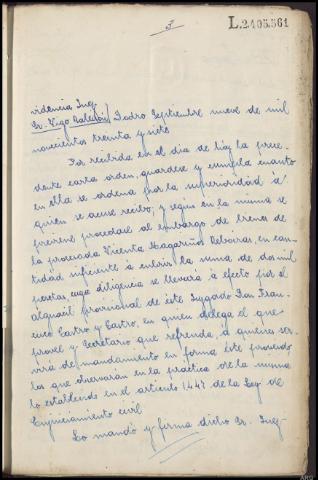 3
L.2405.561
videncia Juez
Sr. Vigo Calderón/ Padrón Septiembre nueve de mil
novecientos treinta y siete
Por recibida en el dia de hoy la prece-
dente carta orden, guardese y cumpla cuanto
en ella se ordena por la superioridad á
quien se acuse recibo, y segun en la misma se
previene procedase al embargo de bienes de
la procesada Vicenta Magariños en can-
tidad suficiente á cubrir la suma de dos mil
pesetas, cuya diligencia se llevará á efecto por el
alguacil provisional de éste Juzgado Don Fran-
cisco Castro y Castro, en quien delega el que
provee y Secretario que refrenda, á quienes ser-
virá de mandamiento en forma éste proveido,
los que observarán en la practica de la misma
lo establecido en el articulo 1.447 de la Ley de
Enjuiciamiento civil
Lo mandó y firma dicho Sr. Juez-